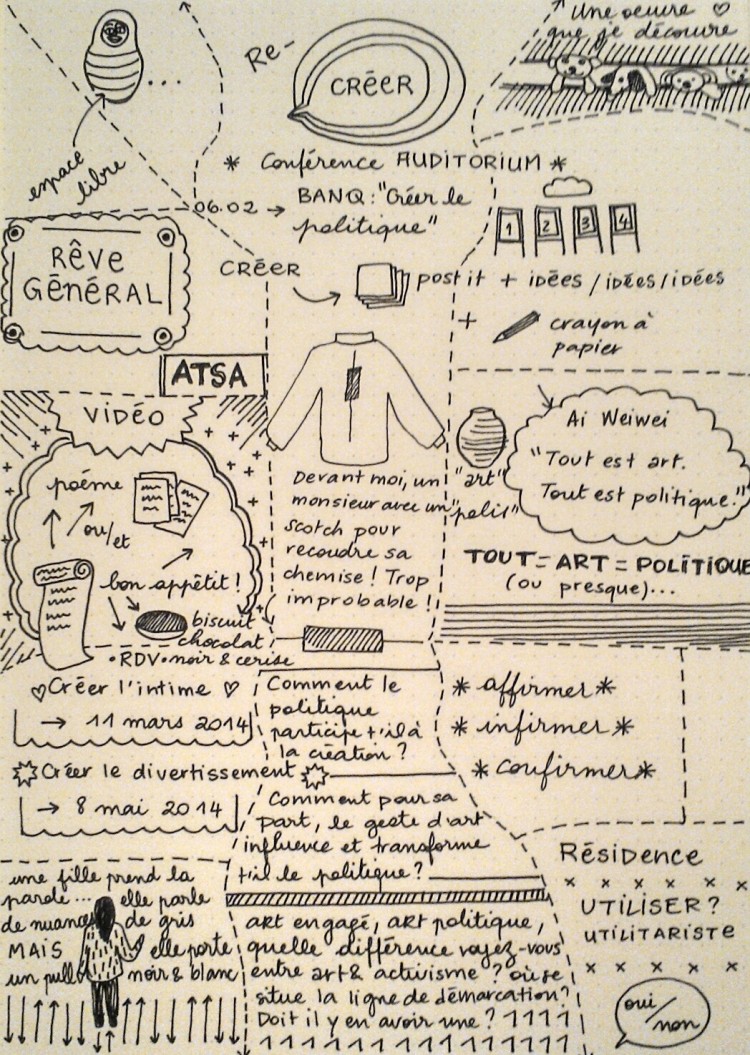 Une oeuvre
que je découvre
Re-
CRÉER
...
espace
libre
* Conférence AUDITORIUM *
06.02 → BANQ : "Créer le
politique"
1 2 3 4
RÊVE
GÉNÉRAL
CRÉER
post it + idées / idées / idées
+ crayon à
papier
ATSA
VIDÉO
poème
ou/et
bon appétit !
biscuit
chocolat
• RDV • noir & cerise
Devant moi, un
monsieur avec un
scotch pour
recoudre sa
chemise ! Trop
improbable !
"art"
"polis"
Ai Weiwei
"Tout est art.
Tout est politique."
TOUT = ART = POLITIQUE
(ou presque)...
Créer l'intime
→ 11 mars 2014
Créer le divertissement
→ 8 mai 2014
Comment le
politique
participe t'il à
la création ?
Comment pour sa
part, le geste d'art
influence et transforme
t'il le politique ?
* affirmer *
* infirmer *
* confirmer *
une fille prend la
parole ... elle parle
de nuances de gris
MAIS elle porte
un pull noir & blanc
art engagé, art politique,
quelle différence voyez-vous
entre art & activisme ? où se
situe la ligne de démarcation ?
Doit il y en avoir une ? 1 1 1 1
1 1 1 1 1 1 1 1 1 1 1 1 1
Résidence
x x x x x
UTILISER ?
UTILITARISTE
x x x x x
oui/non